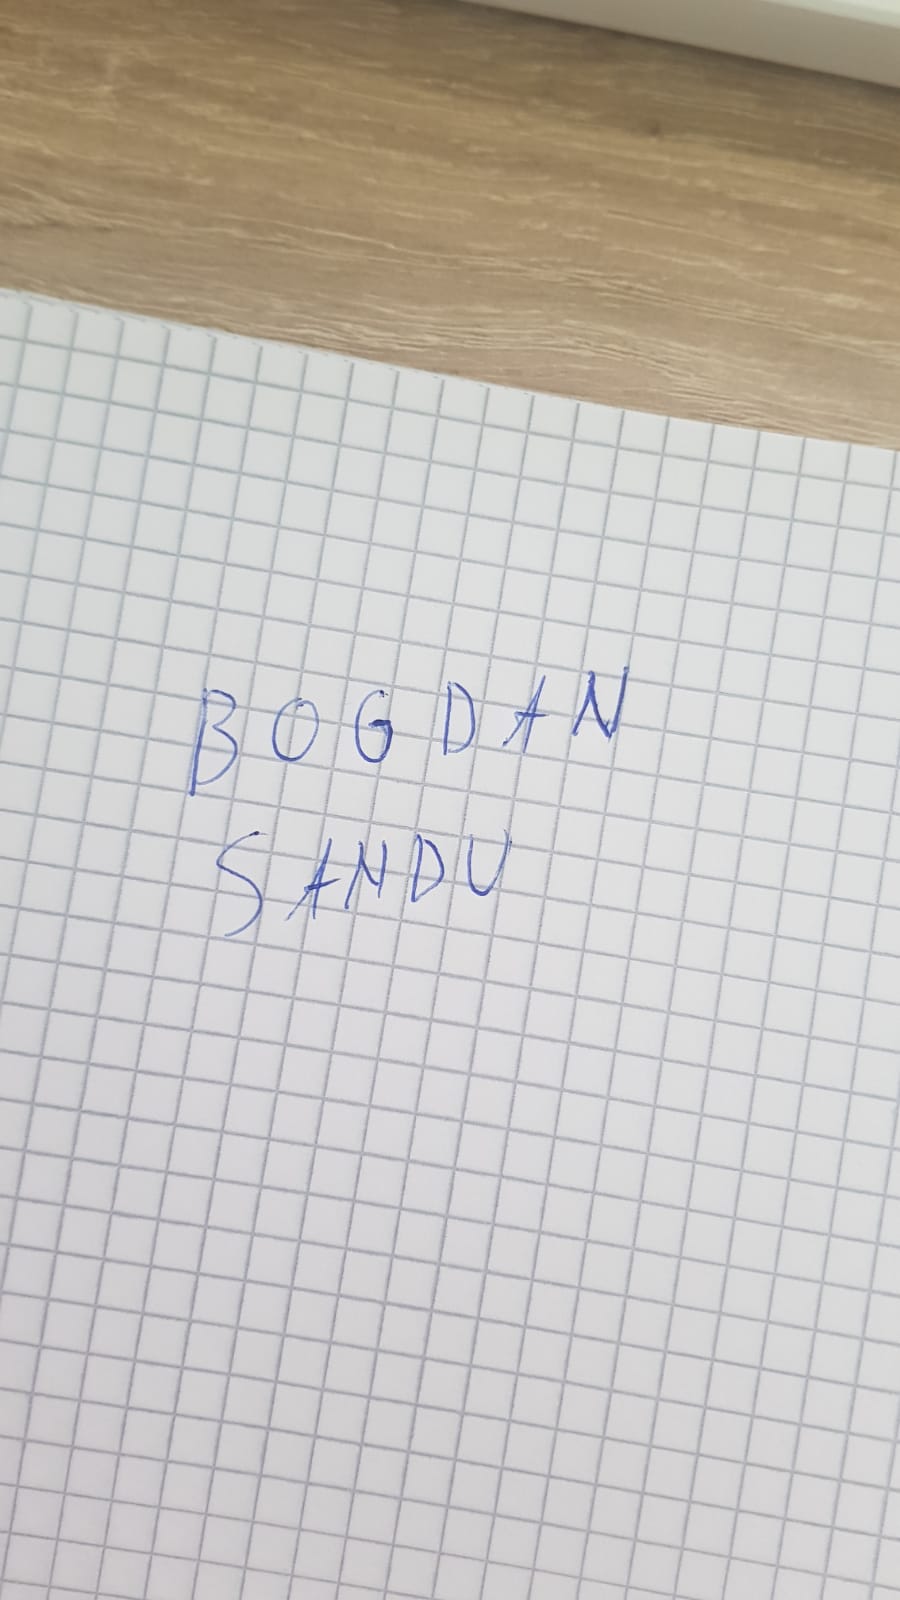 BOGDAN
SANDU